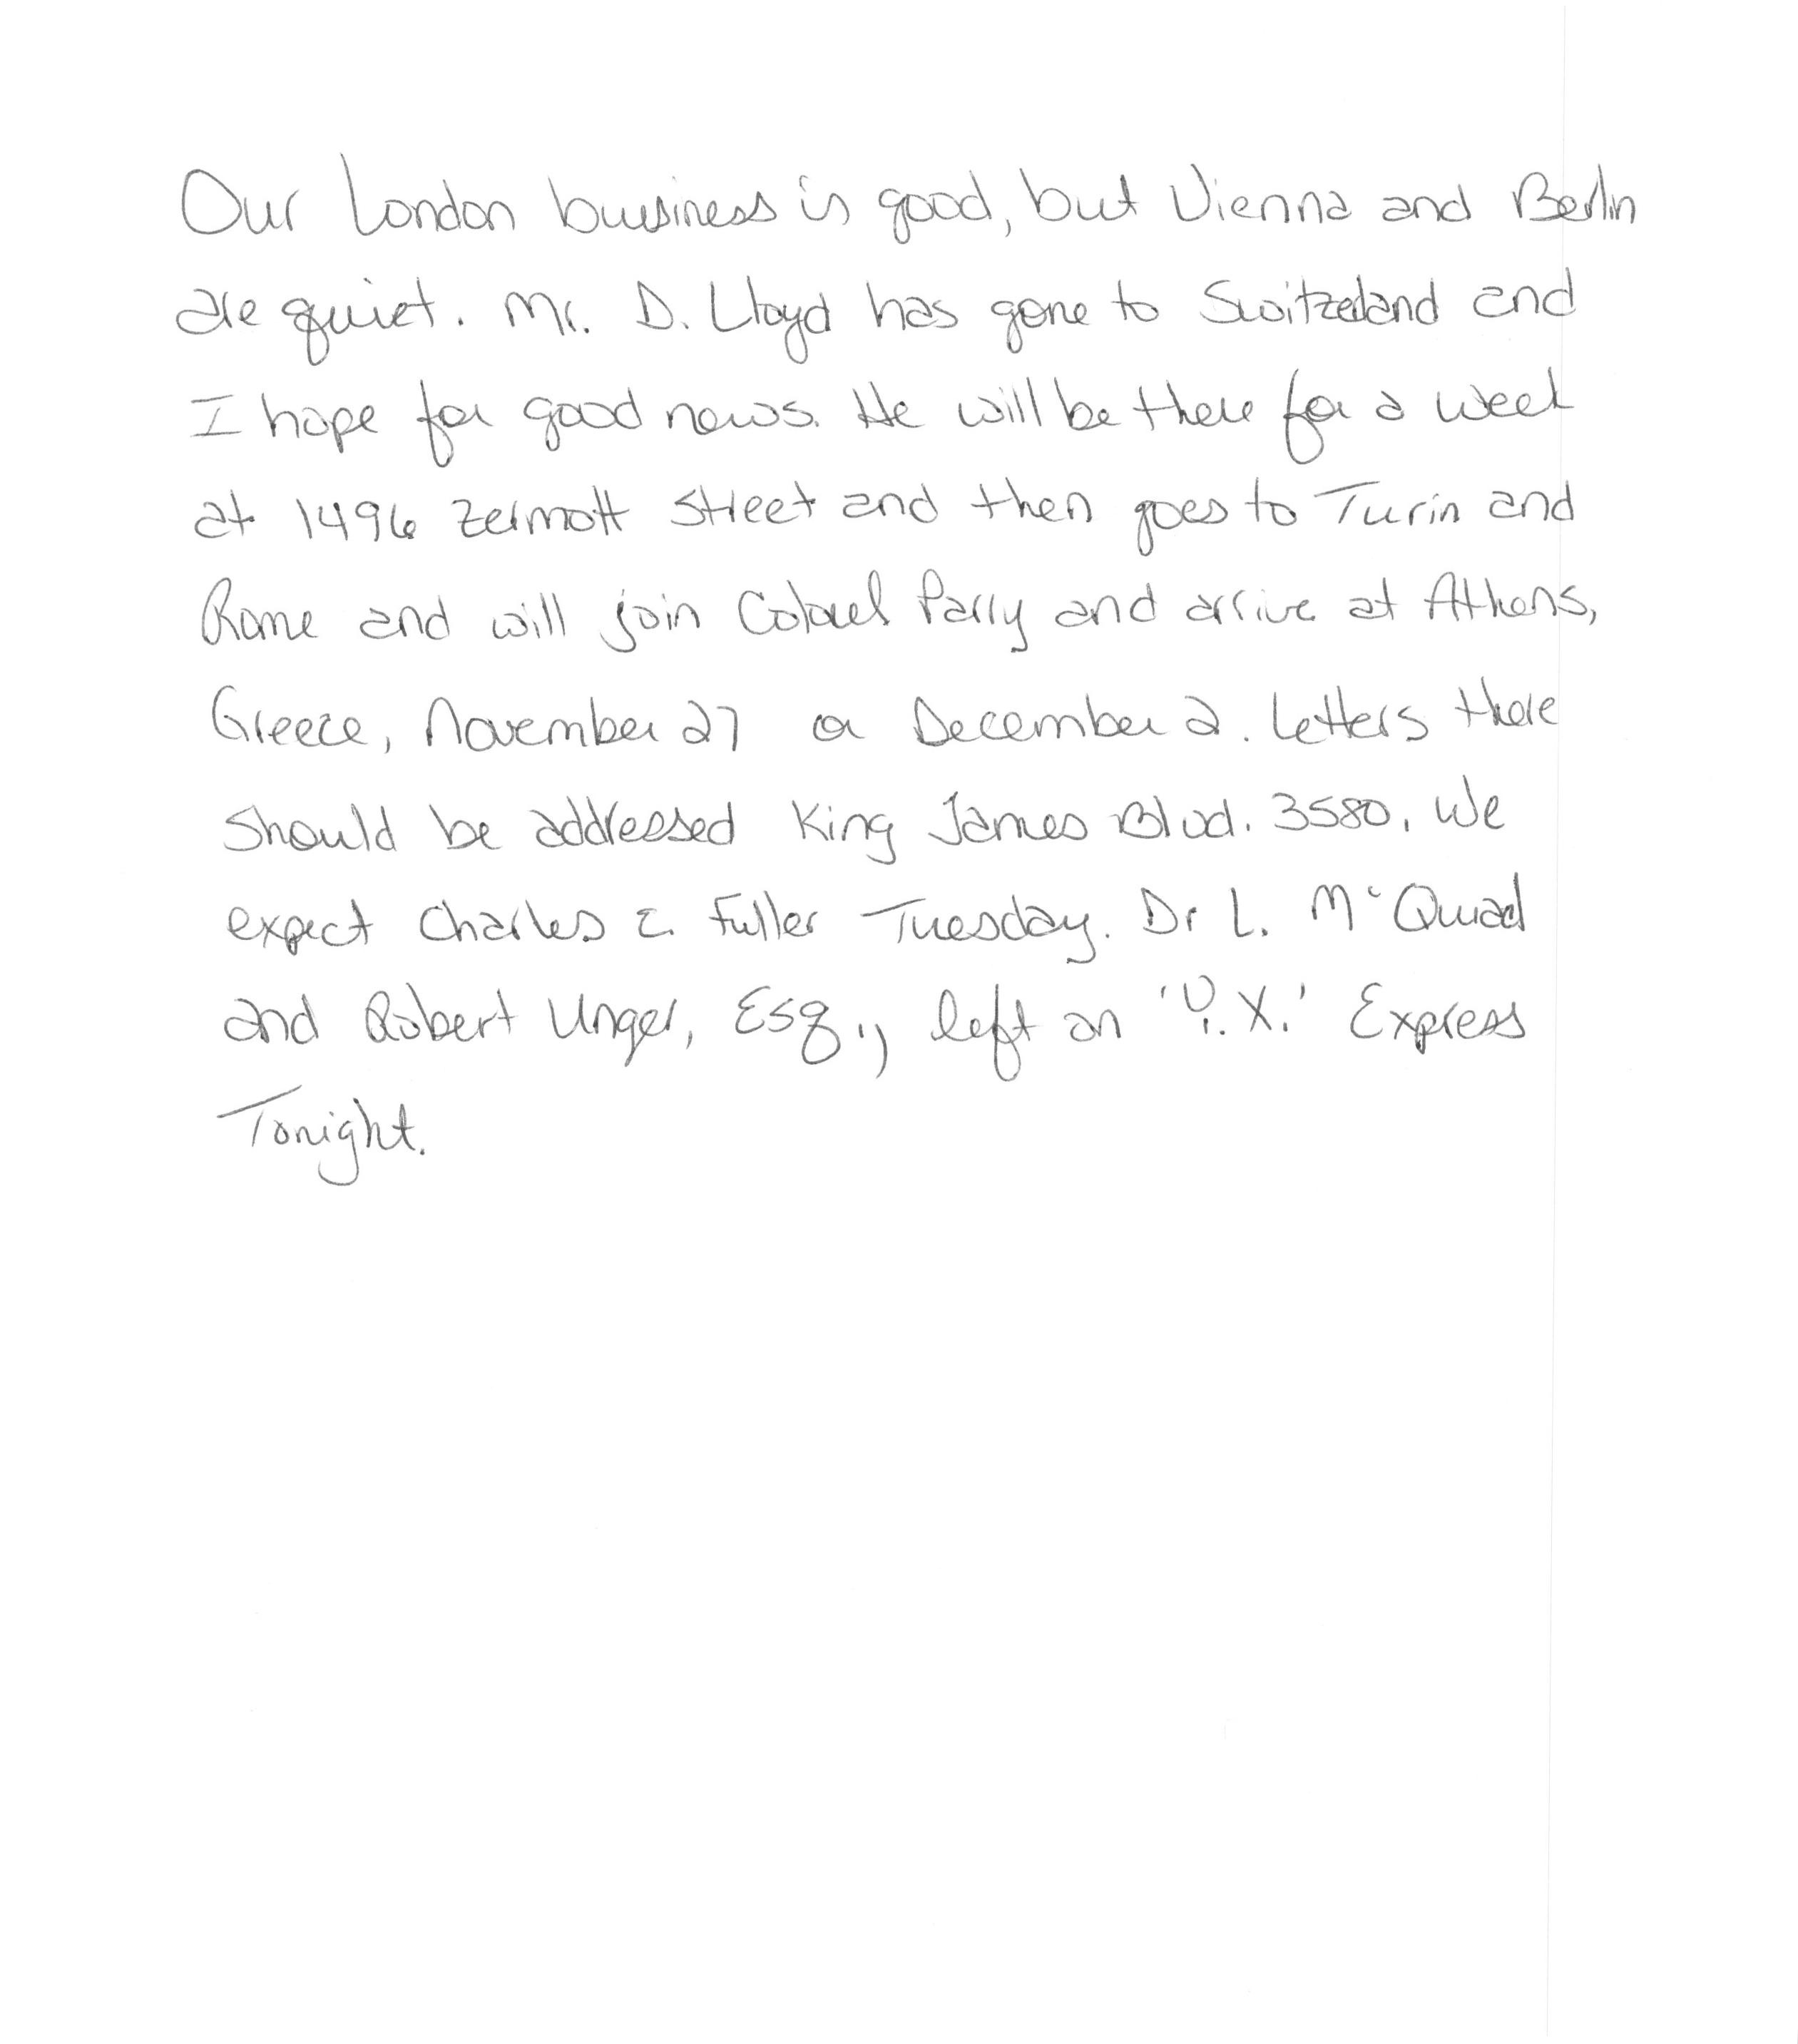 Our London business is good, but Vienna and Berlin
are quiet. Mr. D. Lloyd has gone to Switzerland and
I hope for good news. He will be there for a week
at 1496 Zermott Street and then goes to Turin and
Rome and will join Colonel Parry and arrive at Athens,
Greece, November 27 or December 2. Letters there
should be addressed King James Blvd. 3580. We
expect Charles E. Fuller Tuesday. Dr L. McQuaid
and Robert Unger, Esq., left on 'Y.X.' Express
Tonight.